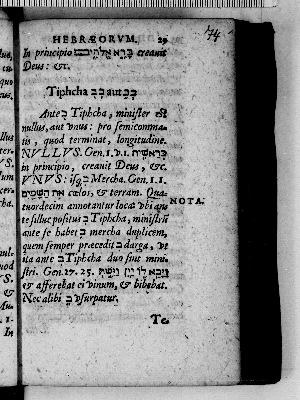 HEBRÆORVM. 29
74
In principio בָּרָא אֱלֹהִים creauit
Deus: &c.
Tiphcha ב aut בב
Ante ב Tiphcha, minister est
nullus, aut vnus: pro semicomma
tis, quod terminat, longitudine.
NVLLVS. Gen. 1. v. 1. בְּרֵאשִׁית
in principio, creauit Deus, &c.
VNVS: isq; ב Mercha. Gen. 1. 1.
את השמים cœlos, & terram. Qua
tuordecim annotantur loca vbi an
te silluc positus ב Tiphcha, ministri
ante se habet ב mercha duplicem,
quem semper præcedit ב darga, vt
ita ante ב Tiphcha duo sint mini
stri. Gen. 27. 25. וַיָּבֵא לוֹ יַיִן וַיֵּשְׁתְּ
& afferebat ei vinum, & bibebat.
Nec alibi ב vsurpatur.
NOTA.
Te